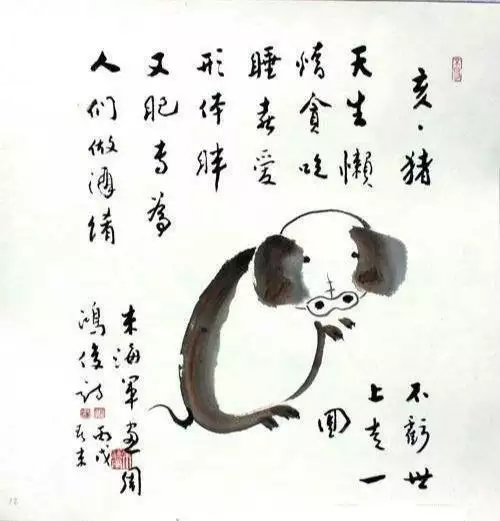 亥·猪
天生懒
惰贪吃
睡喜爱
形体胖
又肥专为
人们做酒餚
不虧世
上走一
海军画周
鸿俊诗
丙戌